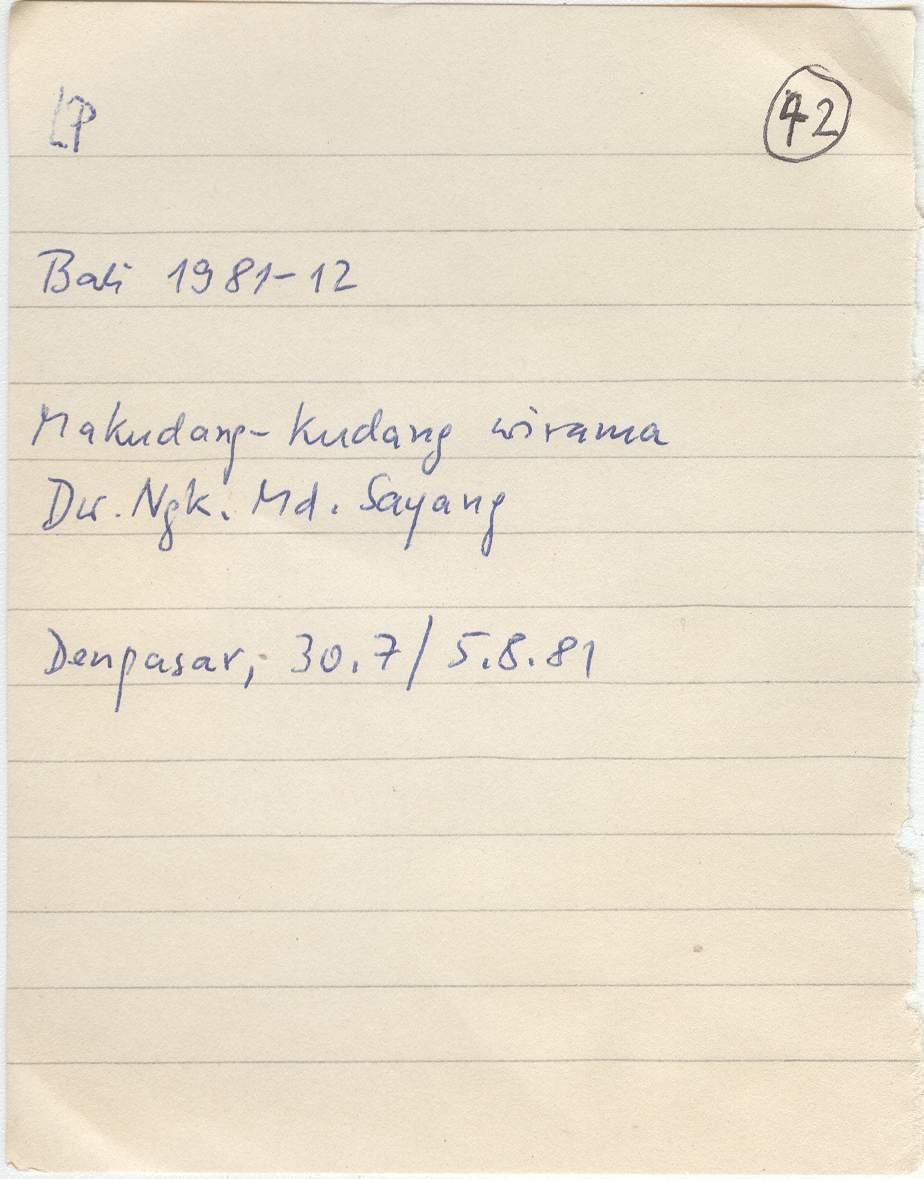 LP
42
Bali 1981-12
Makudang-kudang wirama
Dw. Ngk. Md. Sayang
Denpasar, 30.7/5.8.81